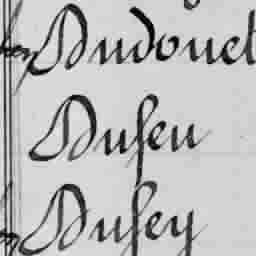 Dudouet
Duſeu
Duſey